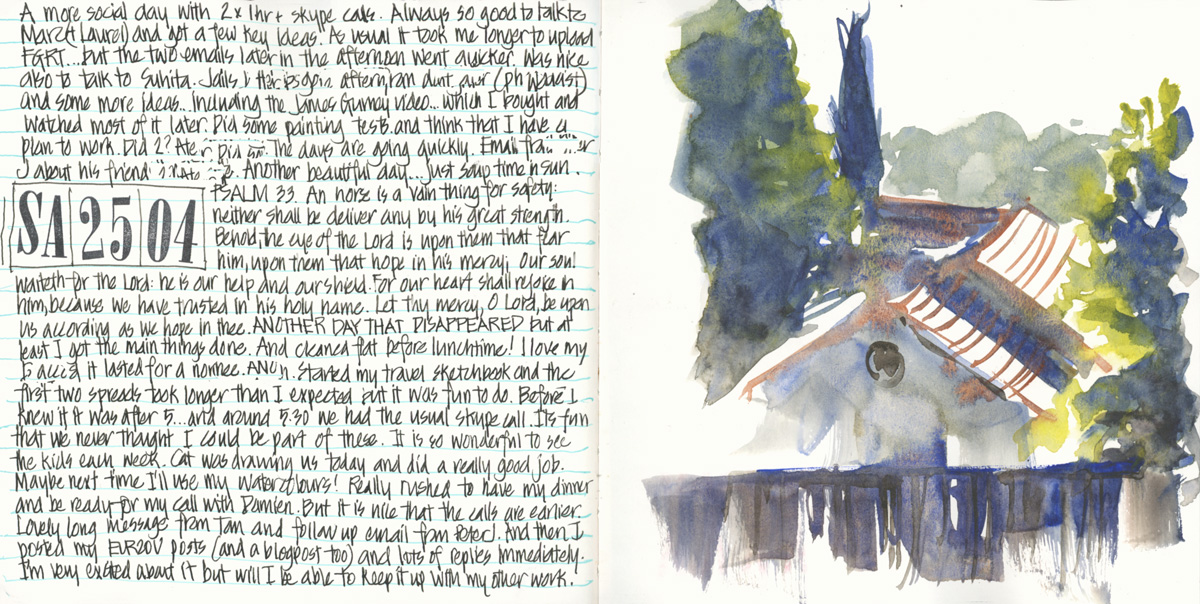 A more social day with 2x 1hr+ skype calls. Always so good to talk to
Marc (& Laurel) and got a few key ideas. As usual it took me longer to upload
F&RT... but the two emails later in the afternoon went quicker. Was nice
also to talk to Sunita. after
and some more ideas... Including the James Gurney video... which I bought and
watched most of it later. Did some painting tests.and think that I have a
plan to work. Did 2? The days are going quickly. Email
J about his friend Another beautiful day... Just soup time in sun.
PSALM 33. An horse is a vain thing for safety:
SA 25 04
neither shall be deliver any by his great strength.
Behold, the eye of the Lord is upon them that fear
him, upon them that hope in his mercy; Our soul
waiteth for the Lord: he is our help and our shield. For our heart shall rejoice in
him, because we have trusted in his holy name. Let thy mercy, O Lord, be upon
us according as we hope in thee. ANOTHER DAY THAT DISAPPEARED but at
least I got the main things done. And cleaned flat before lunchtime! I love my
it lasted for a Started my travel sketchbook and the
first two spreads took longer than I expected but it was fun to do. Before I
knew it it was after 5... and around 5.30 we had the usual skype call. Its fun
that we never thought I could be part of these. It is so wonderful to see
the kids each week. Cat was drawing us today and did a really good job.
Maybe next time I'll use my watercolours! Really rushed to have my dinner
and be ready for my call with Damien. But it is nice that the calls are earlier.
Lovely long message from Tan and follow up email from Peter. And then I
posted my EUR20V posts (and a blogpost too) and lots of replies immediately.
I'm very excited about it but will I be able to keep it up with my other work.